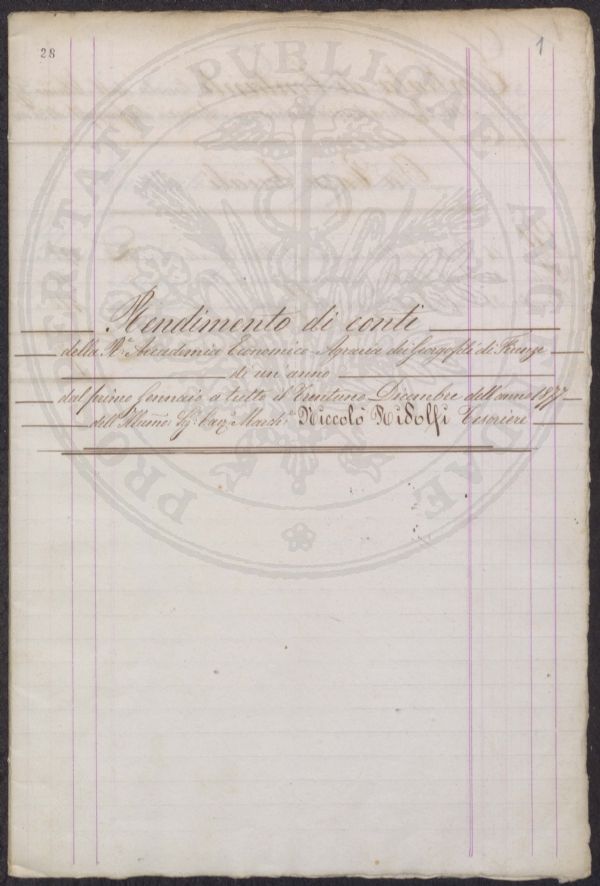 28
1
PROSPERITATI PUBLICAE AUGENDAE
Rendimento di conti
della R.ª Accademia Economico Agraria dei Georgofili di Firenze
di un anno
dal primo Gennaio a tutto il Trentuno Dicembre dell'anno 1877
dell' Illmo Sig. Cav. March. Niccolò Ridolfi Tesoriere